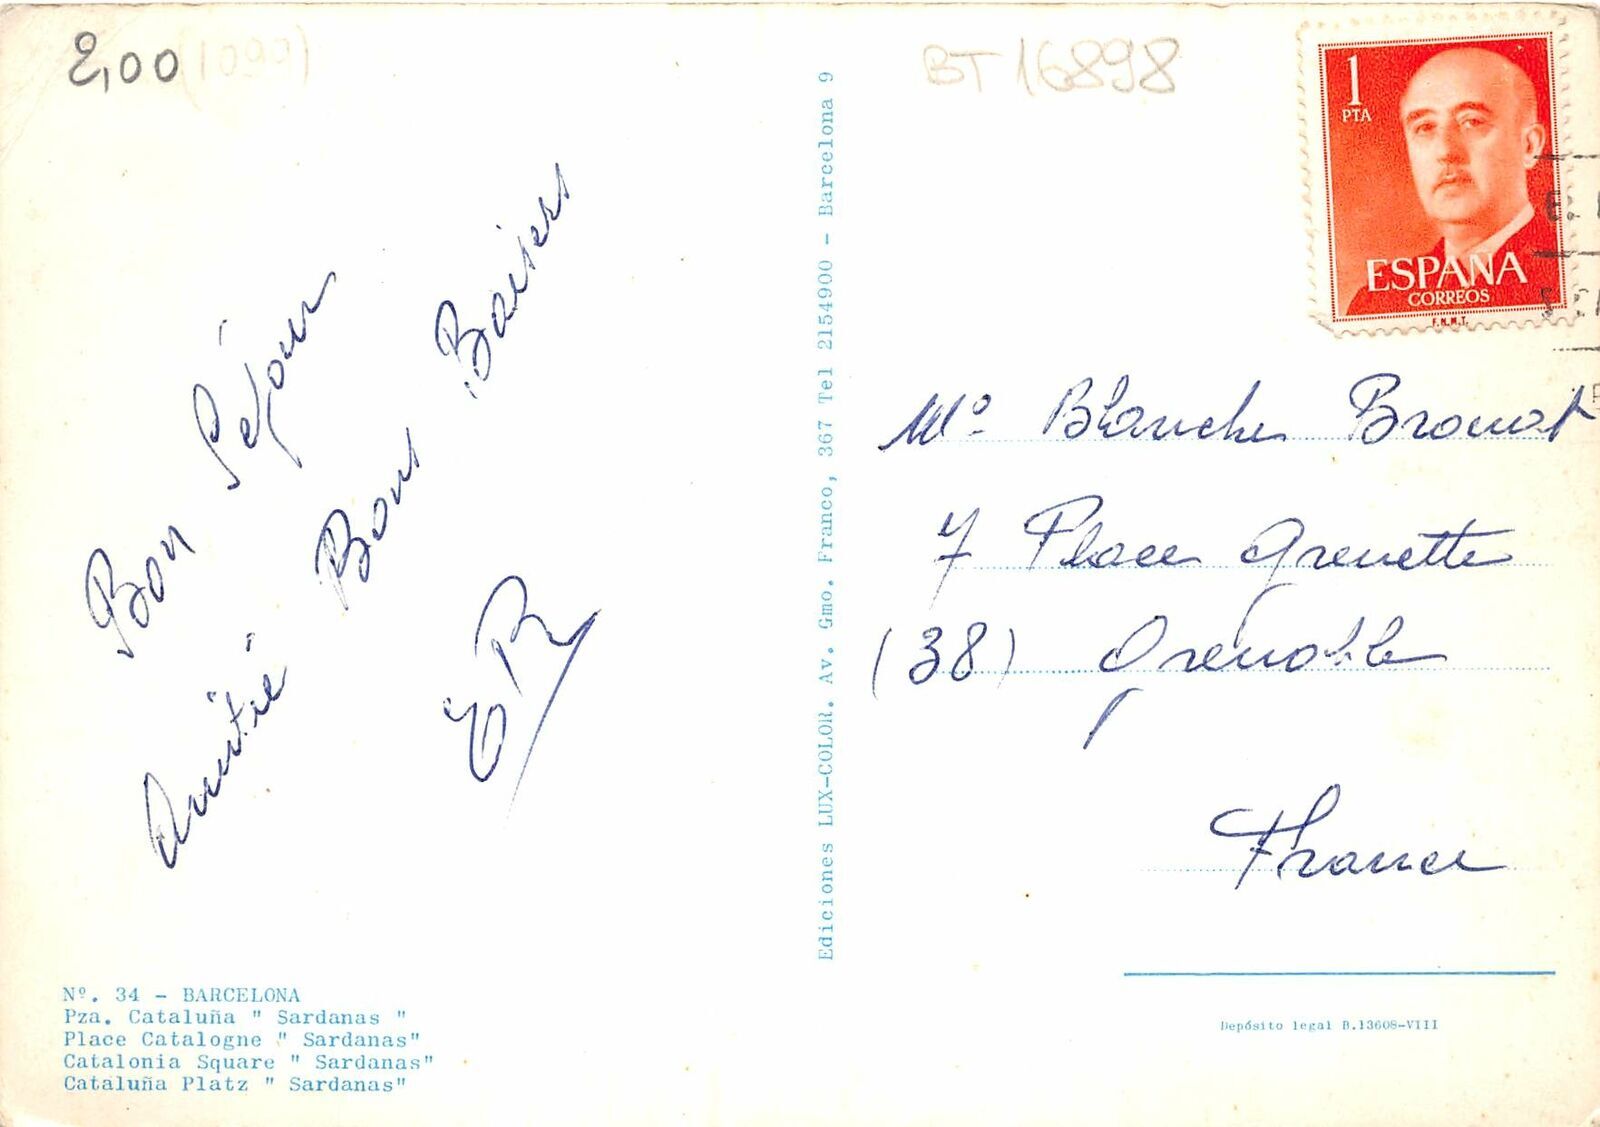 2,00
(1000)
BT 16898
1
PTA
ESPAÑA
CORREOS
F.N.M.T.
Bon Séjour
Amitié Bons Baisers
ER
Mᵉ Blanche
7 Place Grenette
(38) Grenoble
France
Ediciones LUX-COLOR. Av. Gmo. Franco, 367 Tel 2154900 - Barcelona 9
Nº. 34 - BARCELONA
Pza. Cataluña " Sardanas "
Place Catalogne " Sardanas"
Catalonia Square " Sardanas"
Cataluña Platz " Sardanas"
Depósito legal B.13608-VIII